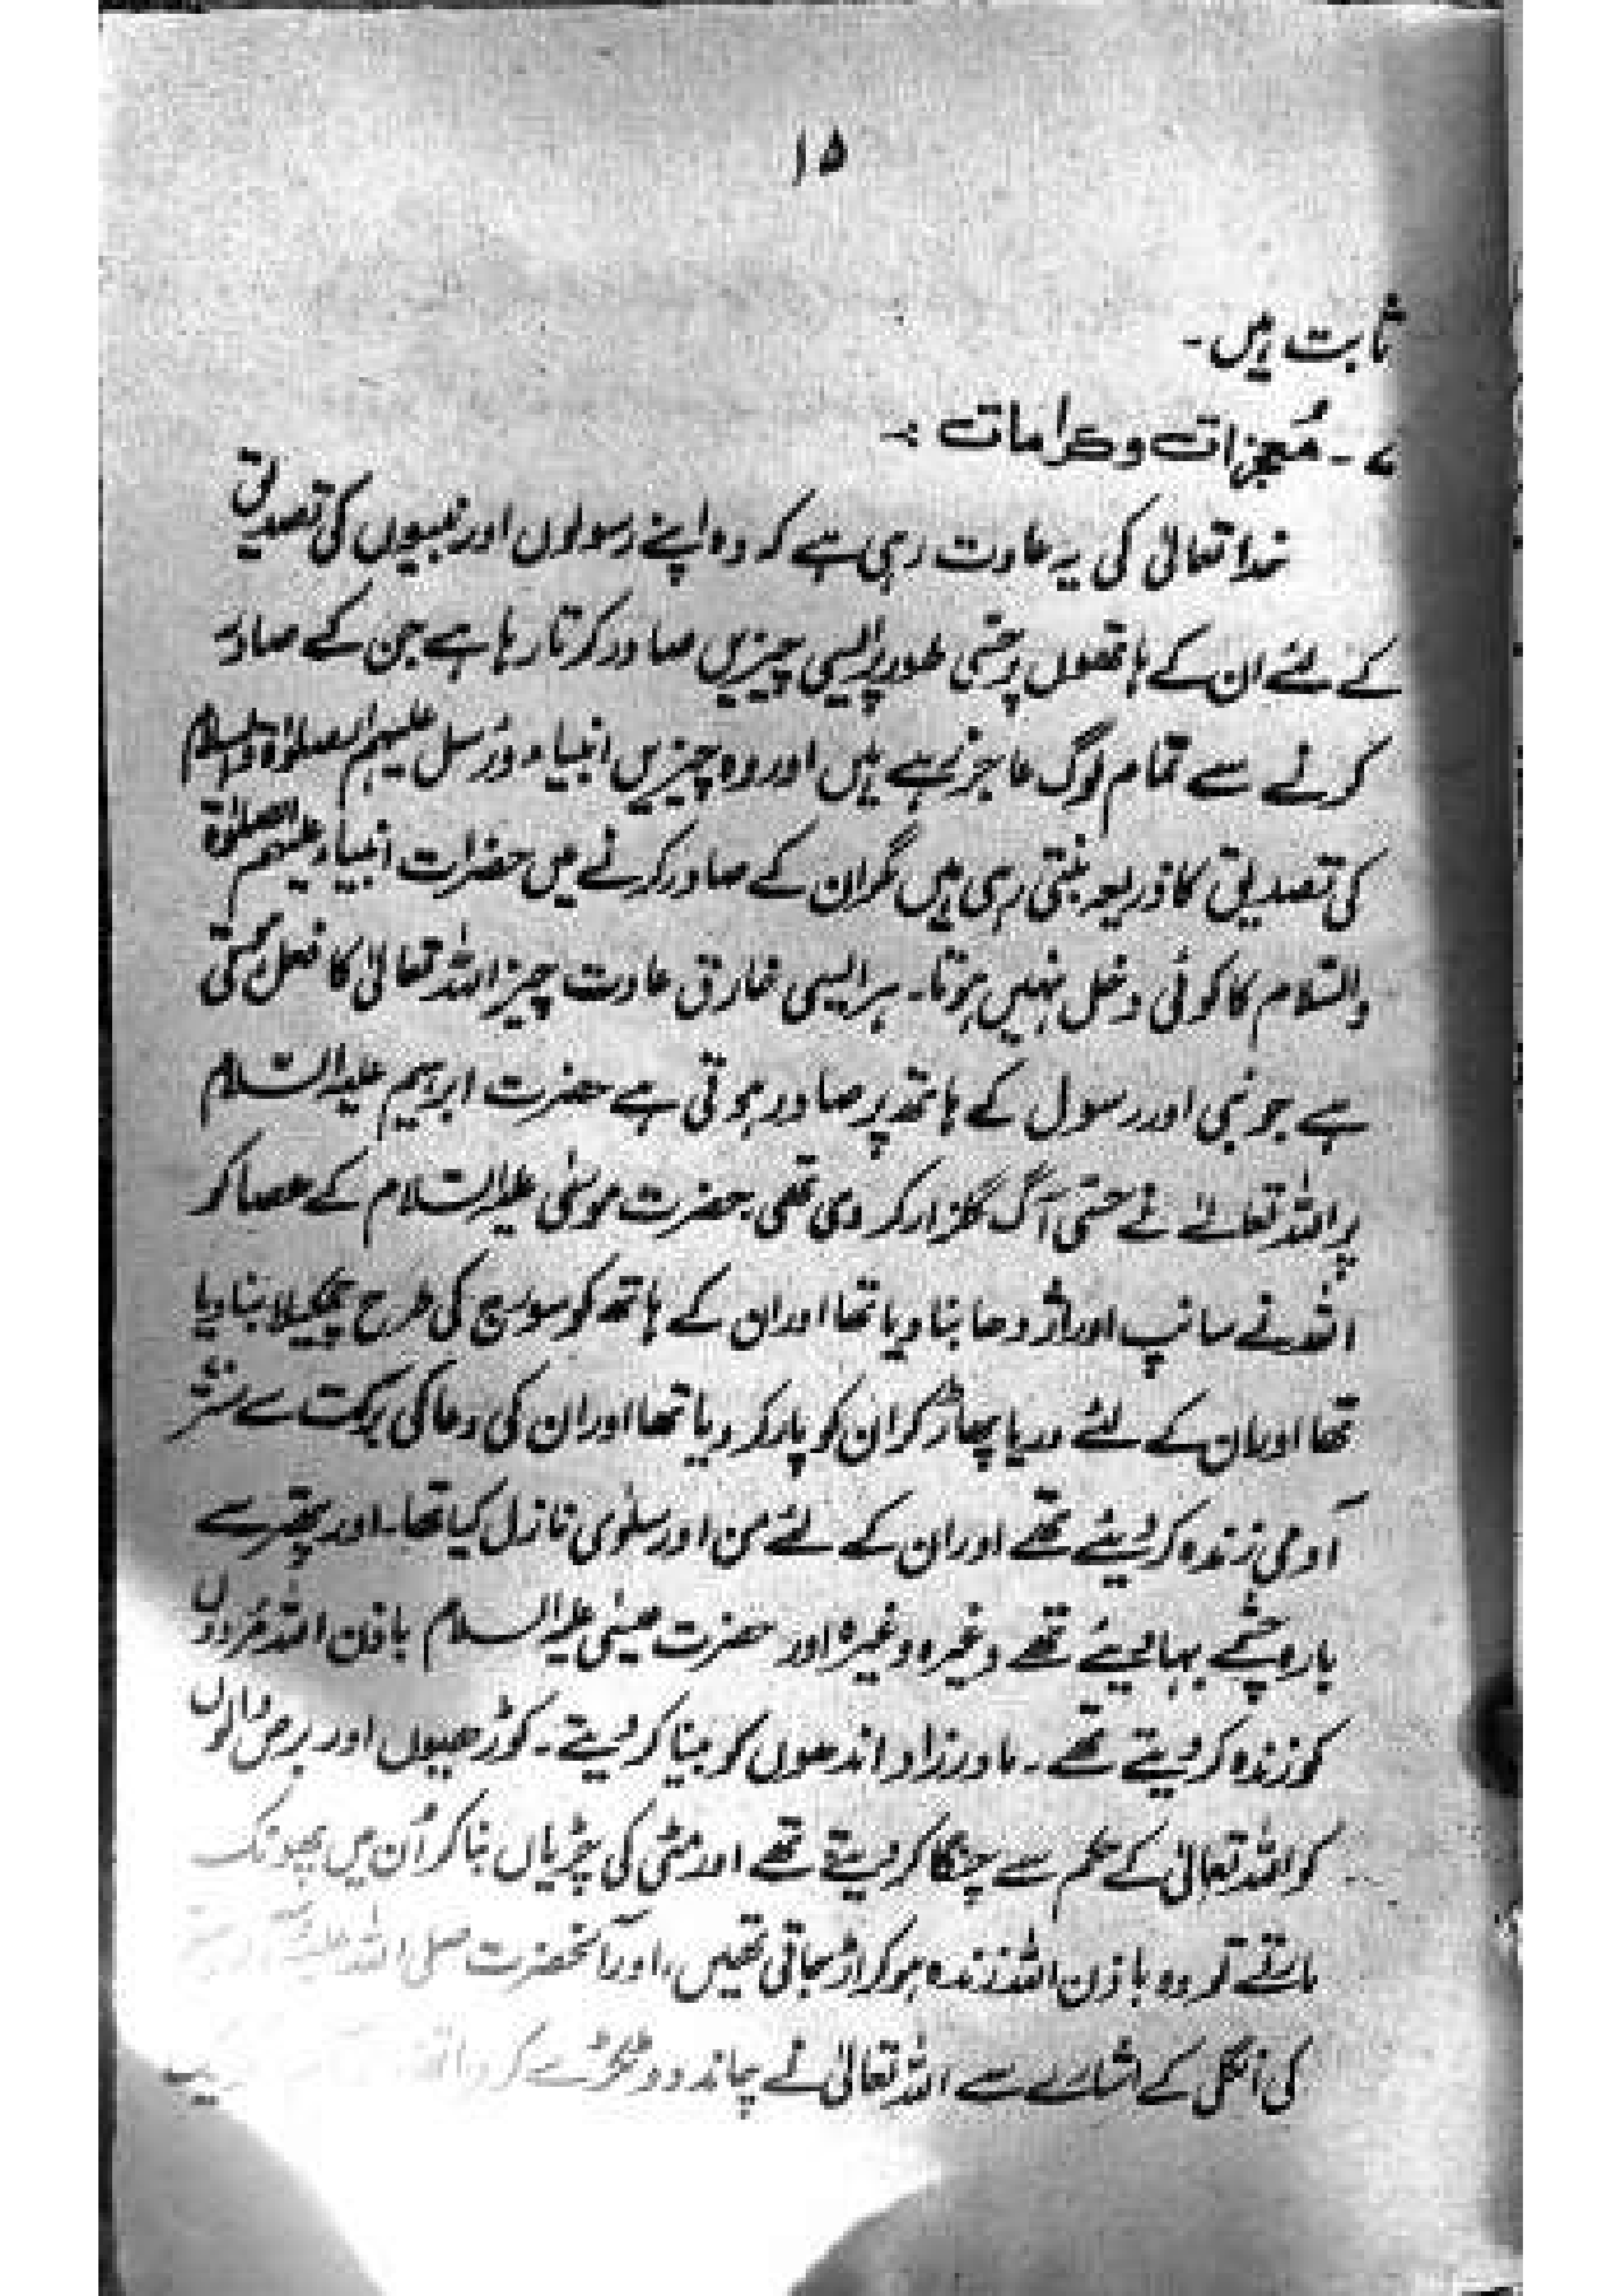 ۱۵
ثابت ہیں۔
۷۔ مُعجزات و کرامات :۔
خدا تعالیٰ کی یہ عادت رہی ہے کہ وہ اپنے رسولوں اور نبیوں کی تصدیق
کے لئے ان کے ہاتھوں پر حسّی طور پر ایسی چیزیں صادر کرتا رہا ہے جن کے صادر
کرنے سے تمام لوگ عاجز رہے ہیں اور وہ چیزیں انبیاء و رُسل علیہم الصلوٰۃ والسلام
کی تصدیق کا ذریعہ بنتی رہی ہیں مگر ان کے صادر کرنے میں حضرات انبیاء علیہم الصلوٰۃ
والسّلام کا کوئی دخل نہیں ہوتا۔ ہر ایسی خارق عادت چیز اللہ تعالیٰ کا فعل ہوتی
ہے جو نبی اور رسول کے ہاتھ پر صادر ہوتی ہے حضرت ابراہیم علیہ السّلام
پر اللہ تعالےٰ نے حسّی آگ گلزار کر دی تھی۔ حضرت موسٰی علیہ السّلام کے عصا کو
اللہ نے سانپ اور اژدھا بنا دیا تھا اور ان کے ہاتھ کو سورج کی طرح چمکیلا بنا دیا
تھا اور ان کے لئے دریا پھاڑ کر ان کو پار کر دیا تھا اور ان کی دعا کی برکت سے ستّر
آدمی زندہ کر دیئے تھے اور ان کے لئے من اور سلوٰی نازل کیا تھا۔ اور پتھر سے
بارہ چشمے بہا دیئے تھے وغیرہ وغیرہ اور حضرت عیسٰی علیہ السلام باذن اللہ مُردوں
کو زندہ کر دیتے تھے۔ مادر زاد اندھوں کو بینا کر دیتے۔ کوڑھیوں اور برص والوں
کو اللہ تعالیٰ کے حکم سے چنگا کر دیتے تھے اور مٹی کی چڑیاں بنا کر اُن میں پھونک
مارتے تو وہ باذن اللہ زندہ ہو کر اڑ جاتی تھیں، اور آنحضرت صلی اللہ علیہ
کی انگلی کے اشارے سے اللہ تعالیٰ نے چاند دو ٹکڑے کر دیا